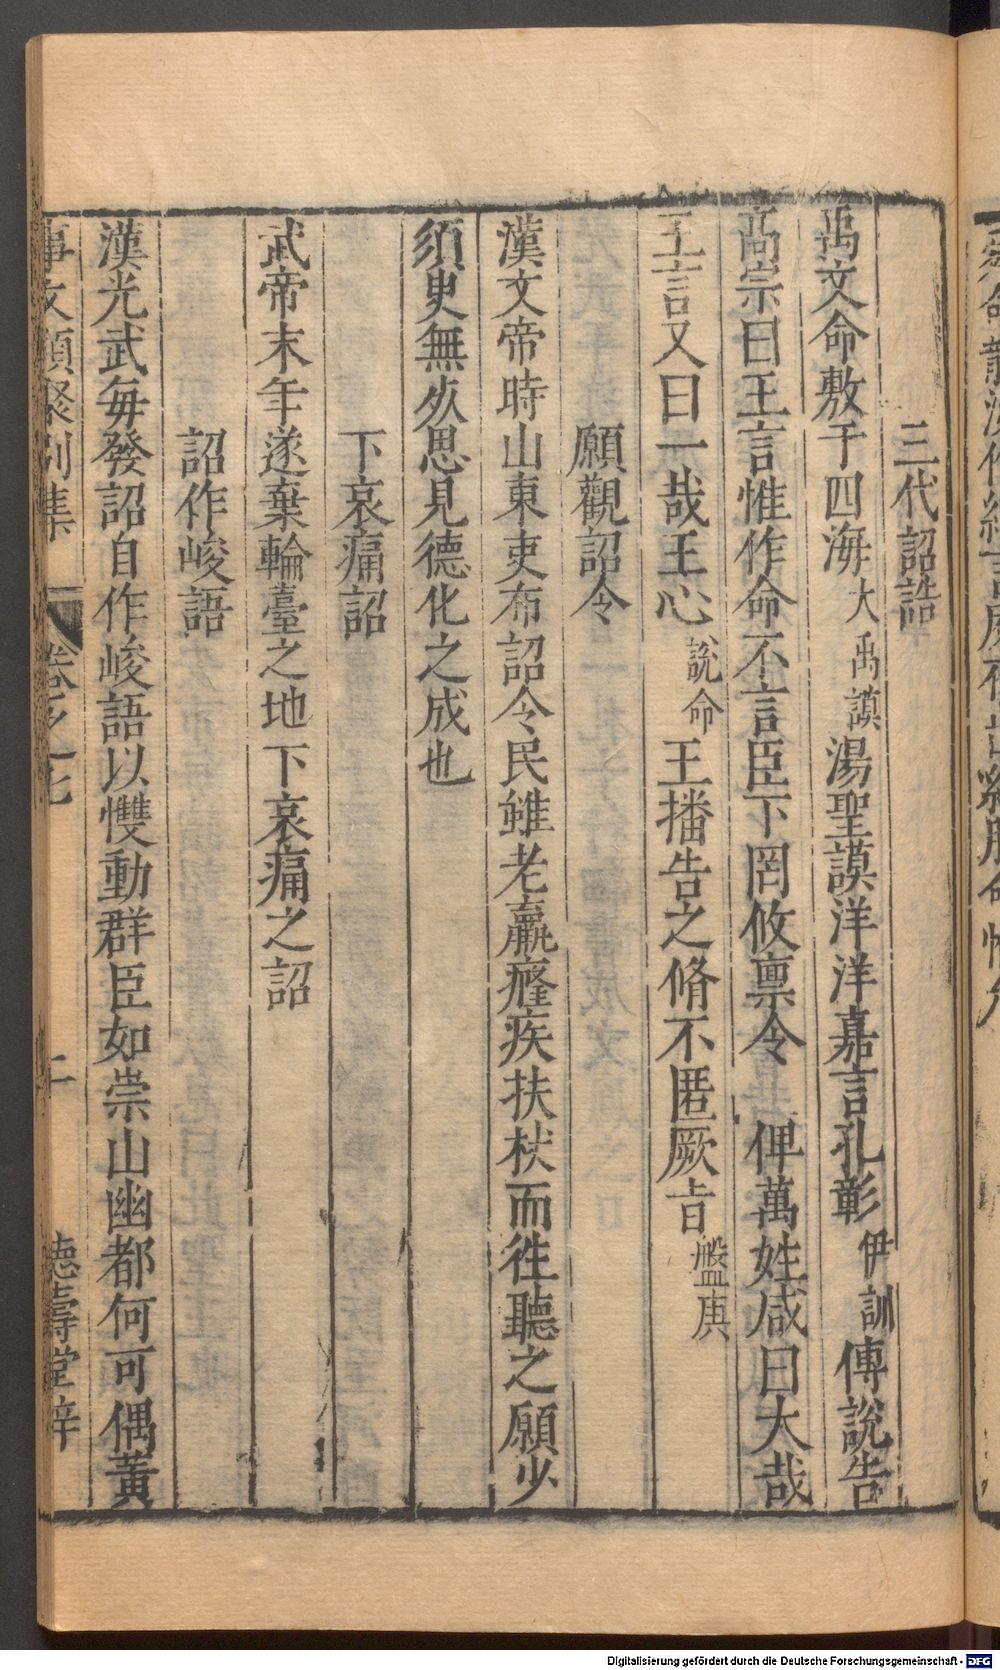 三代詔誥
禹文命敷于四海大禹謨湯聖謨洋洋嘉言孔彰伊訓傅說告
高宗曰王言惟作命不言臣下罔攸禀令俾萬姓咸曰大哉
王言又曰一哉王心說命王播告之脩不匿厥㫖盤庚
願觀詔令
漢文帝時山東吏布詔令民雖老羸癃疾扶杖而徃聽之願少
須臾無死思見德化之成也
下哀痛詔
武帝末年遂棄輪臺之地下哀痛之詔
詔作峻語
漢光武每發詔自作峻語以戄動群臣如崇山幽都何可偶黃
事文類聚別集 卷之七 十 德壽堂梓
Digitalisierung gefördert durch die Deutsche Forschungsgemeinschaft - DFG